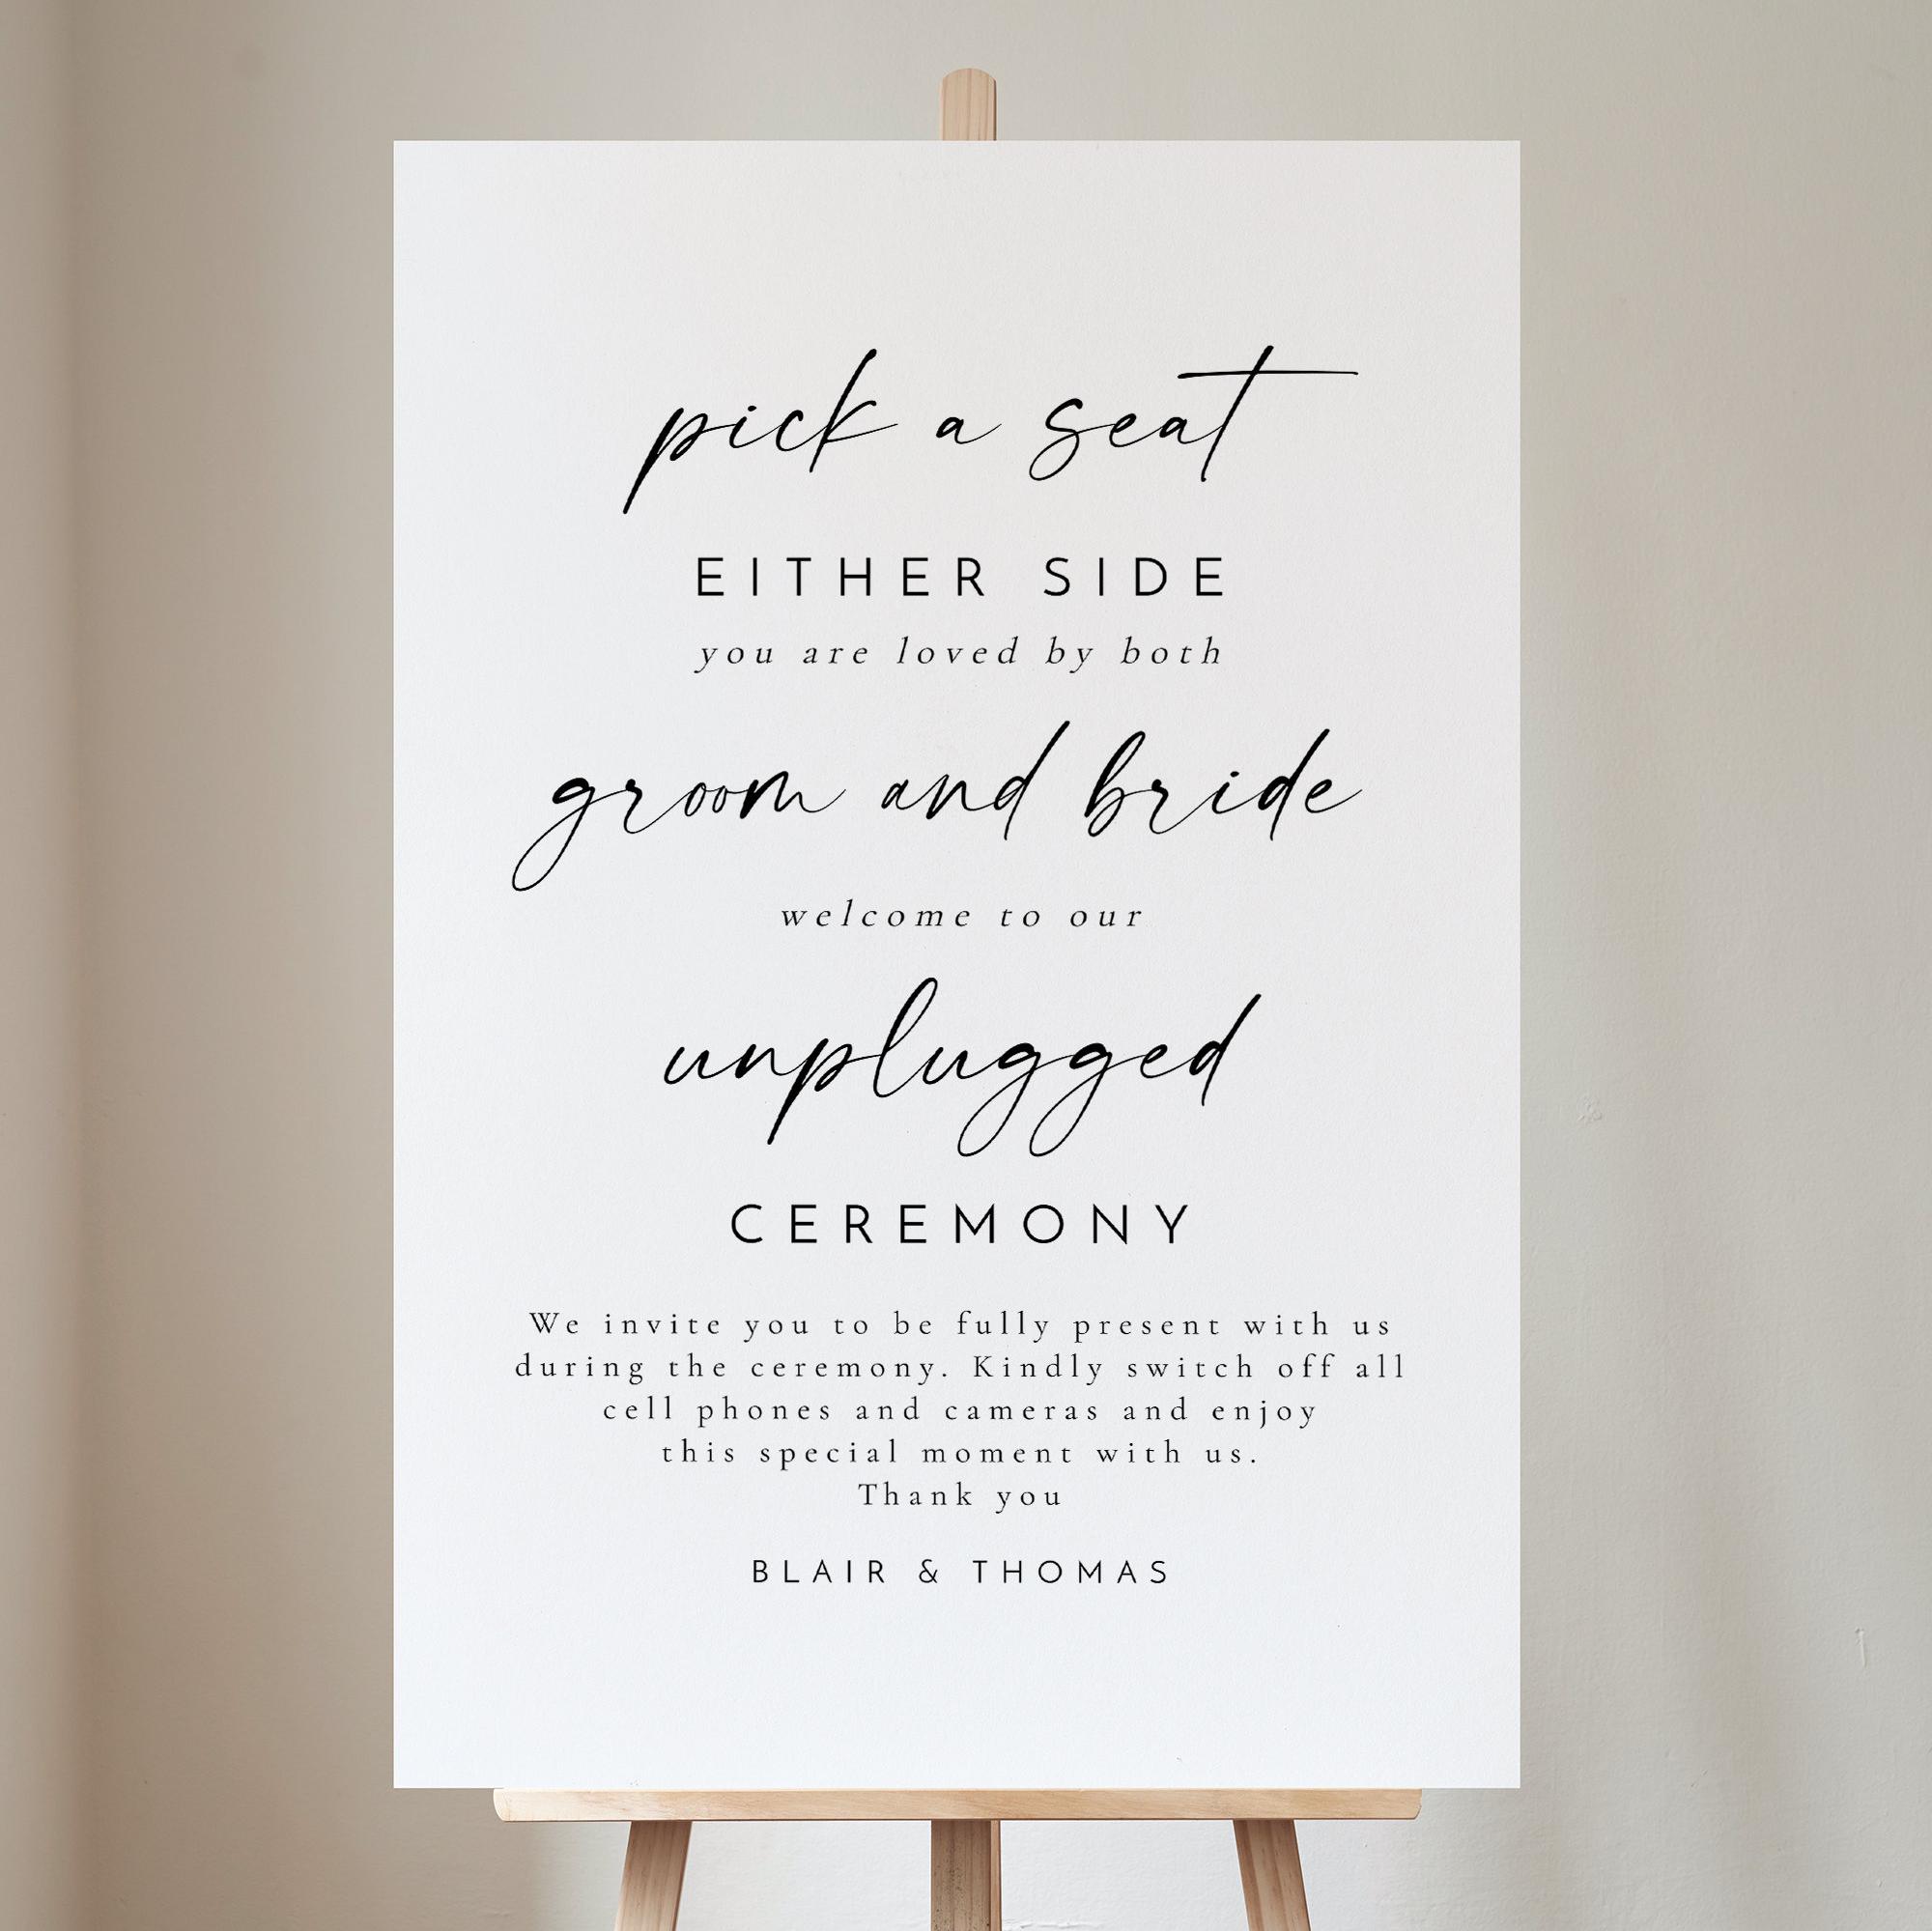 pick a seat
EITHER SIDE
you are loved by both
groom and bride
welcome to our
unplugged
CEREMONY
We invite you to be fully present with us
during the ceremony. Kindly switch off all
cell phones and cameras and enjoy
this special moment with us.
Thank you
BLAIR & THOMAS